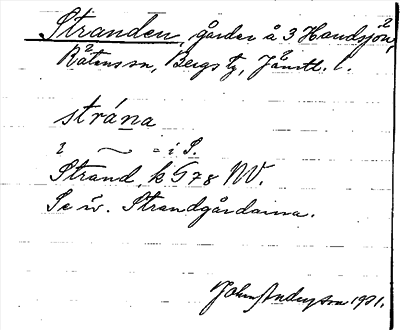 Stranden, gårder å 3 Handsjön,
Rätans sn, Bergs tg, Jämtl. l.
strána
i ~ = i S.
Strand, k G78 NV.
Se äv. Strandgårdarna.
John Anderson 1931.